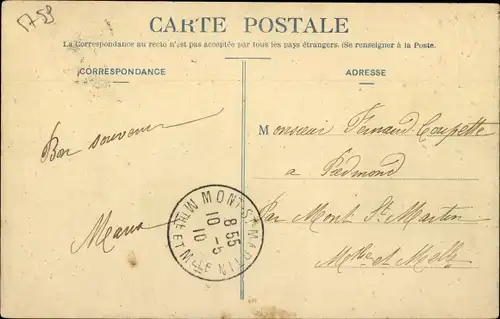 1753
CARTE POSTALE
La Correspondance au recto n'est pas acceptée par tous les pays étrangers. (Se renseigner à la Poste.
CORRESPONDANCE
ADRESSE
Bon souvenir
Monsieur Fernand Coupette
a Piedmond
Par Mont St Martin
Mthe et Mlle
MONT-ST-MARTIN
8 55
10 -5
10
MTHE ET MLLE